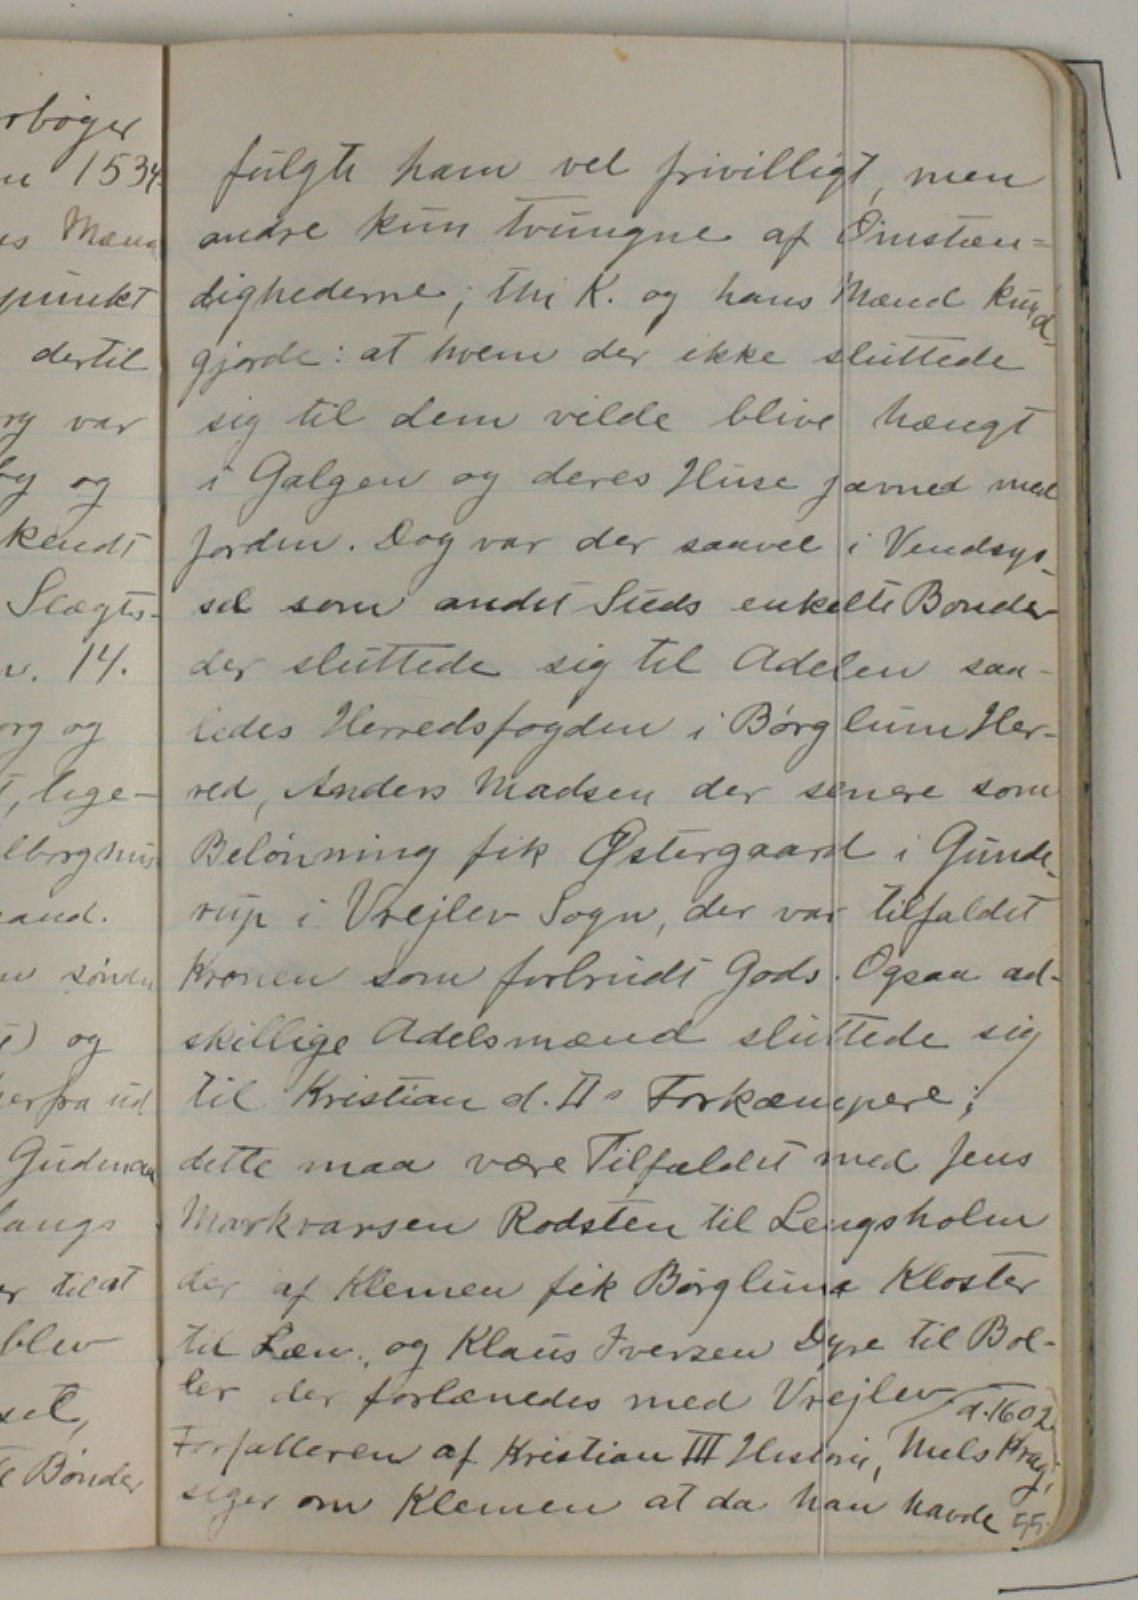 rbøger
1534
Mæng
punkt
dertil
var
og
kendt
Slægts-
14.
og
lige-
sønden
og
herfra ud
Gudman
langs
til at
blev
Bønder
fulgte ham vel frivilligt, men
andre kun tvungne af Omstæn=
dighederne; thi K. og hans Mænd kund-
gjorde: at hvem der ikke sluttede
sig til dem vilde blive hængt
i Galgen og deres Huse jævned med
Jorden. Dog var der saavel i Vendsys-
sel som andet Steds enkelte Bønder
der sluttede sig til Adelen saa-
ledes Herredsfogden i Børglum Her-
red, Anders Madsen der senere som
Belønning fik Østergaard i Gunde-
rup i Vrejlev Sogn, der var tilfaldet
Kronen som forbrudt Gods. Ogsaa ad-
skillige Adelsmænd sluttede sig
til Kristian d. II's Forkæmpere;
dette maa være Tilfældet med Jens
Markvarsen Rodsten til Lengsholm
der af Klemen fik Børglum Kloster
til Læn., og Klaus Iversen Dyre til Bol-
ler der forlænedes med Vrejlev
d. 1602
Forfatteren af Kristian III Historie, Niels Krag,
siger om Klemen at da han havde
55.